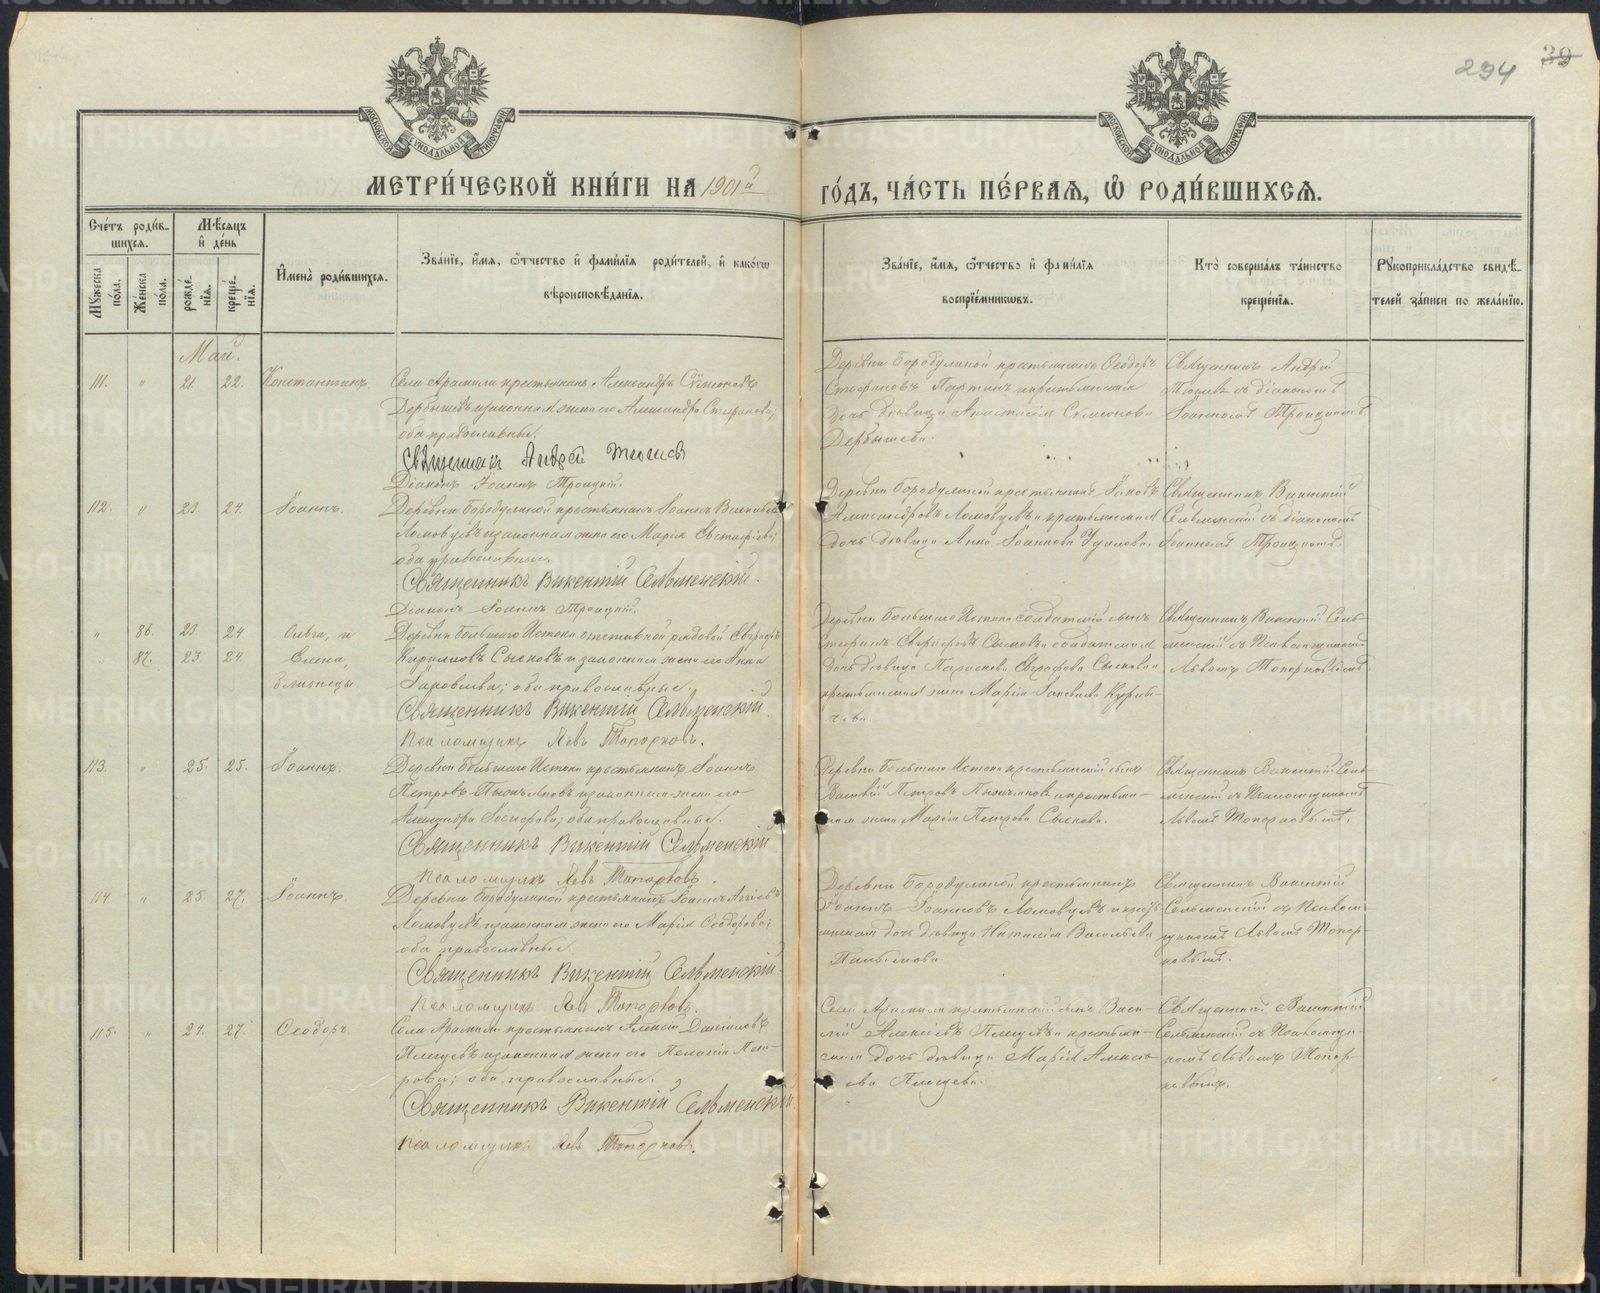 294 39
МОСКОВСКОЙ СѴНОДАЛЬНОЙ ТИПОГРАФІИ
МОСКОВСКОЙ СѴНОДАЛЬНОЙ ТИПОГРАФІИ
МЕТРИ́ЧЕСКОЙ КНИ́ГИ НА 1901й ГО́ДЪ, ЧА́СТЬ ПЕ́РВАЯ, Ѡ РОДИ́ВШИХСЯ.
Сче́тъ роди́в-
шихся.
Мꙋ́жеска по́ла.
Же́нска по́ла.
Мѣ́сяцъ
и҆ де́нь
рожде́-
нїя.
креще́-
нїя.
И҆мена̀ роди́вшихся.
Зва́нїе, и҆́мя, ѻ҆́тчество и҆ фами́лїя роди́телей, и҆ како́гѡ
вѣроисповѣ́данїя.
Зва́нїе, и҆́мя, ѻ҆́тчество и҆ фами́лїя
воспрїе́мникѡвъ.
Кто̀ соверша́лъ та́инство
креще́нїя.
Рꙋкоприкла́дство свидѣ́-
телей за́писи по жела́нїю.
Май.
111. " 21 22. Константинъ.
Села Арамили крестьянинъ Александръ Симеоновъ
Дербышевъ и законная жена его Александра Стефанова;
оба православные.
Священникъ Андрей
Діаконъ Іоаннъ Троицкій.
Деревни Бородулиной крестьянинъ Ѳеодоръ
Стефановъ Паргинъ и крестьянская
дочь дѣвица Анастасія Симеонова
Дербышева.
Священникъ Андрей
съ діакономъ
Іоанномъ Троицкимъ
112. " 23. 24. Іоаннъ.
Деревни Бородулиной крестьянинъ Іоаннъ
Ломовцевъ и законная жена его Марія Евстафіева;
оба православные.
Священникъ Викентій Сельменскій.
Діаконъ Іоаннъ Троицкій.
Деревни Бородулиной крестьянинъ Іаковъ
Александровъ Ломовцевъ и крестьянская
дочь дѣвица Анна Іоаннова
Священникъ Викентій
Сельменскій съ діакономъ
Іоанномъ Троицкимъ.
" 86. 23. 24 Ольга, и
" 87. 23 24 Елена,
близнецы
Деревни Большаго Истока отставной рядовой Евграфъ
Кирилловъ Сысковъ и законная жена его Анна
Іаковлева; оба православные.
Священникъ Викентій Сельменскій.
Псаломщикъ Левъ Топорковъ.
Деревни Большаго Истока солдатскій сынъ
Евграфовъ Сысковъ и солдатская
дочь дѣвица Параскева Евграфова Сыскова и
крестьянская жена Марія Іаковлева
Священникъ Викентій Сель-
менскій съ Псаломщикомъ
Львомъ Топорковымъ
113. " 25. 25. Іоаннъ.
Деревни Большаго Истока крестьянинъ Іоаннъ
Петровъ и законная жена его
Александра оба православные.
Священникъ Викентій Сельменскій
Псаломщикъ Левъ Топорковъ.
Деревни Большаго Истока крестьянскій сынъ
Василій Петровъ и крестьян-
ская жена Марія Петрова Сыскова.
Священникъ Викентій Сель-
менскій съ Псаломщикомъ
Львомъ Топорковымъ.
114. " 25. 27. Іоаннъ.
Деревни Бородулиной крестьянинъ Іоаннъ
Ломовцевъ и законная жена его Марія Ѳеодорова;
оба православные.
Священникъ Викентій Сельменскій.
Псаломщикъ Левъ Топорковъ.
Деревни Бородулиной крестьянинъ
Іоаннъ Іоанновъ Ломовцевъ и кресть-
янская дочь дѣвица Наталія Васильева
Священникъ Викентій
Сельменскій съ Псалом-
щикомъ Львомъ Топор-
ковымъ.
115. " 27. 27. Ѳеодоръ.
Села Арамили крестьянинъ Алексій Даниловъ
Плещевъ и законная жена его Пелагія Пет-
рова; оба православные.
Священникъ Викентій Сельменскій
Псаломщикъ Левъ Топорковъ.
Села Арамили крестьянскій сынъ Васи-
лій Алексіевъ Плещевъ и крестьян-
ская дочь дѣвица Марія Алексі-
ева Плещева.
Священникъ Викентій
Сельменскій съ Псаломщи-
комъ Львомъ Топор-
ковымъ.
METRIKI.GASO-URAL.RU